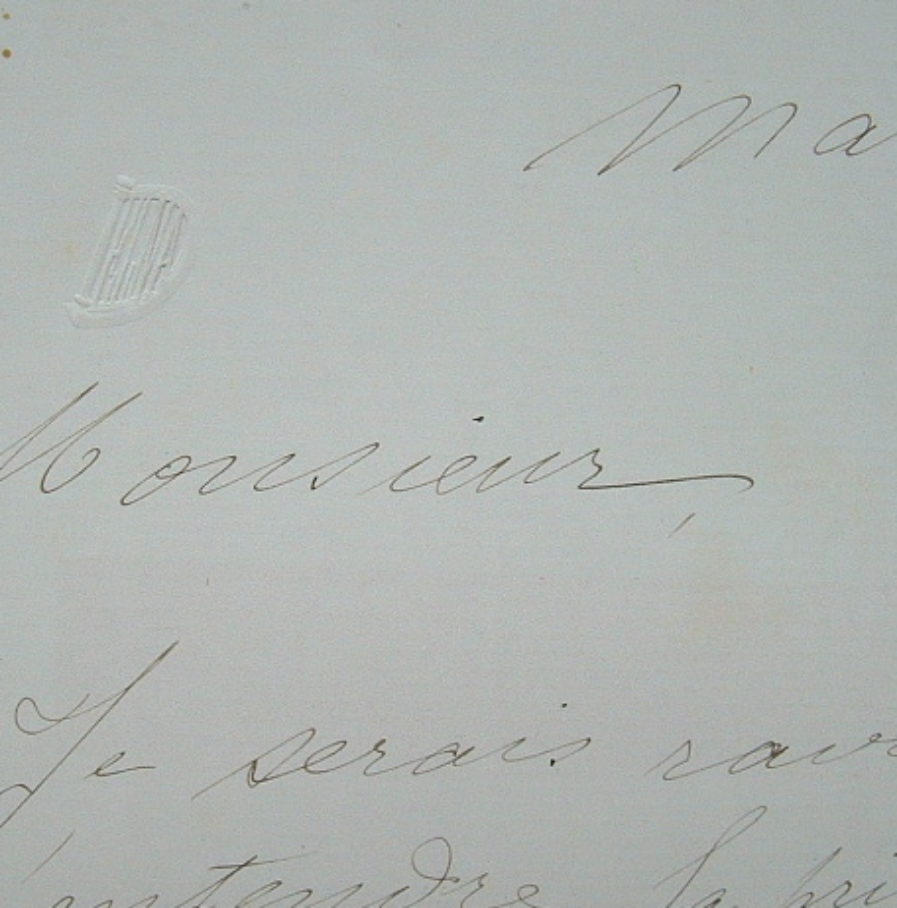 Ma
Monsieur,
Je serais rav
entendre la pri